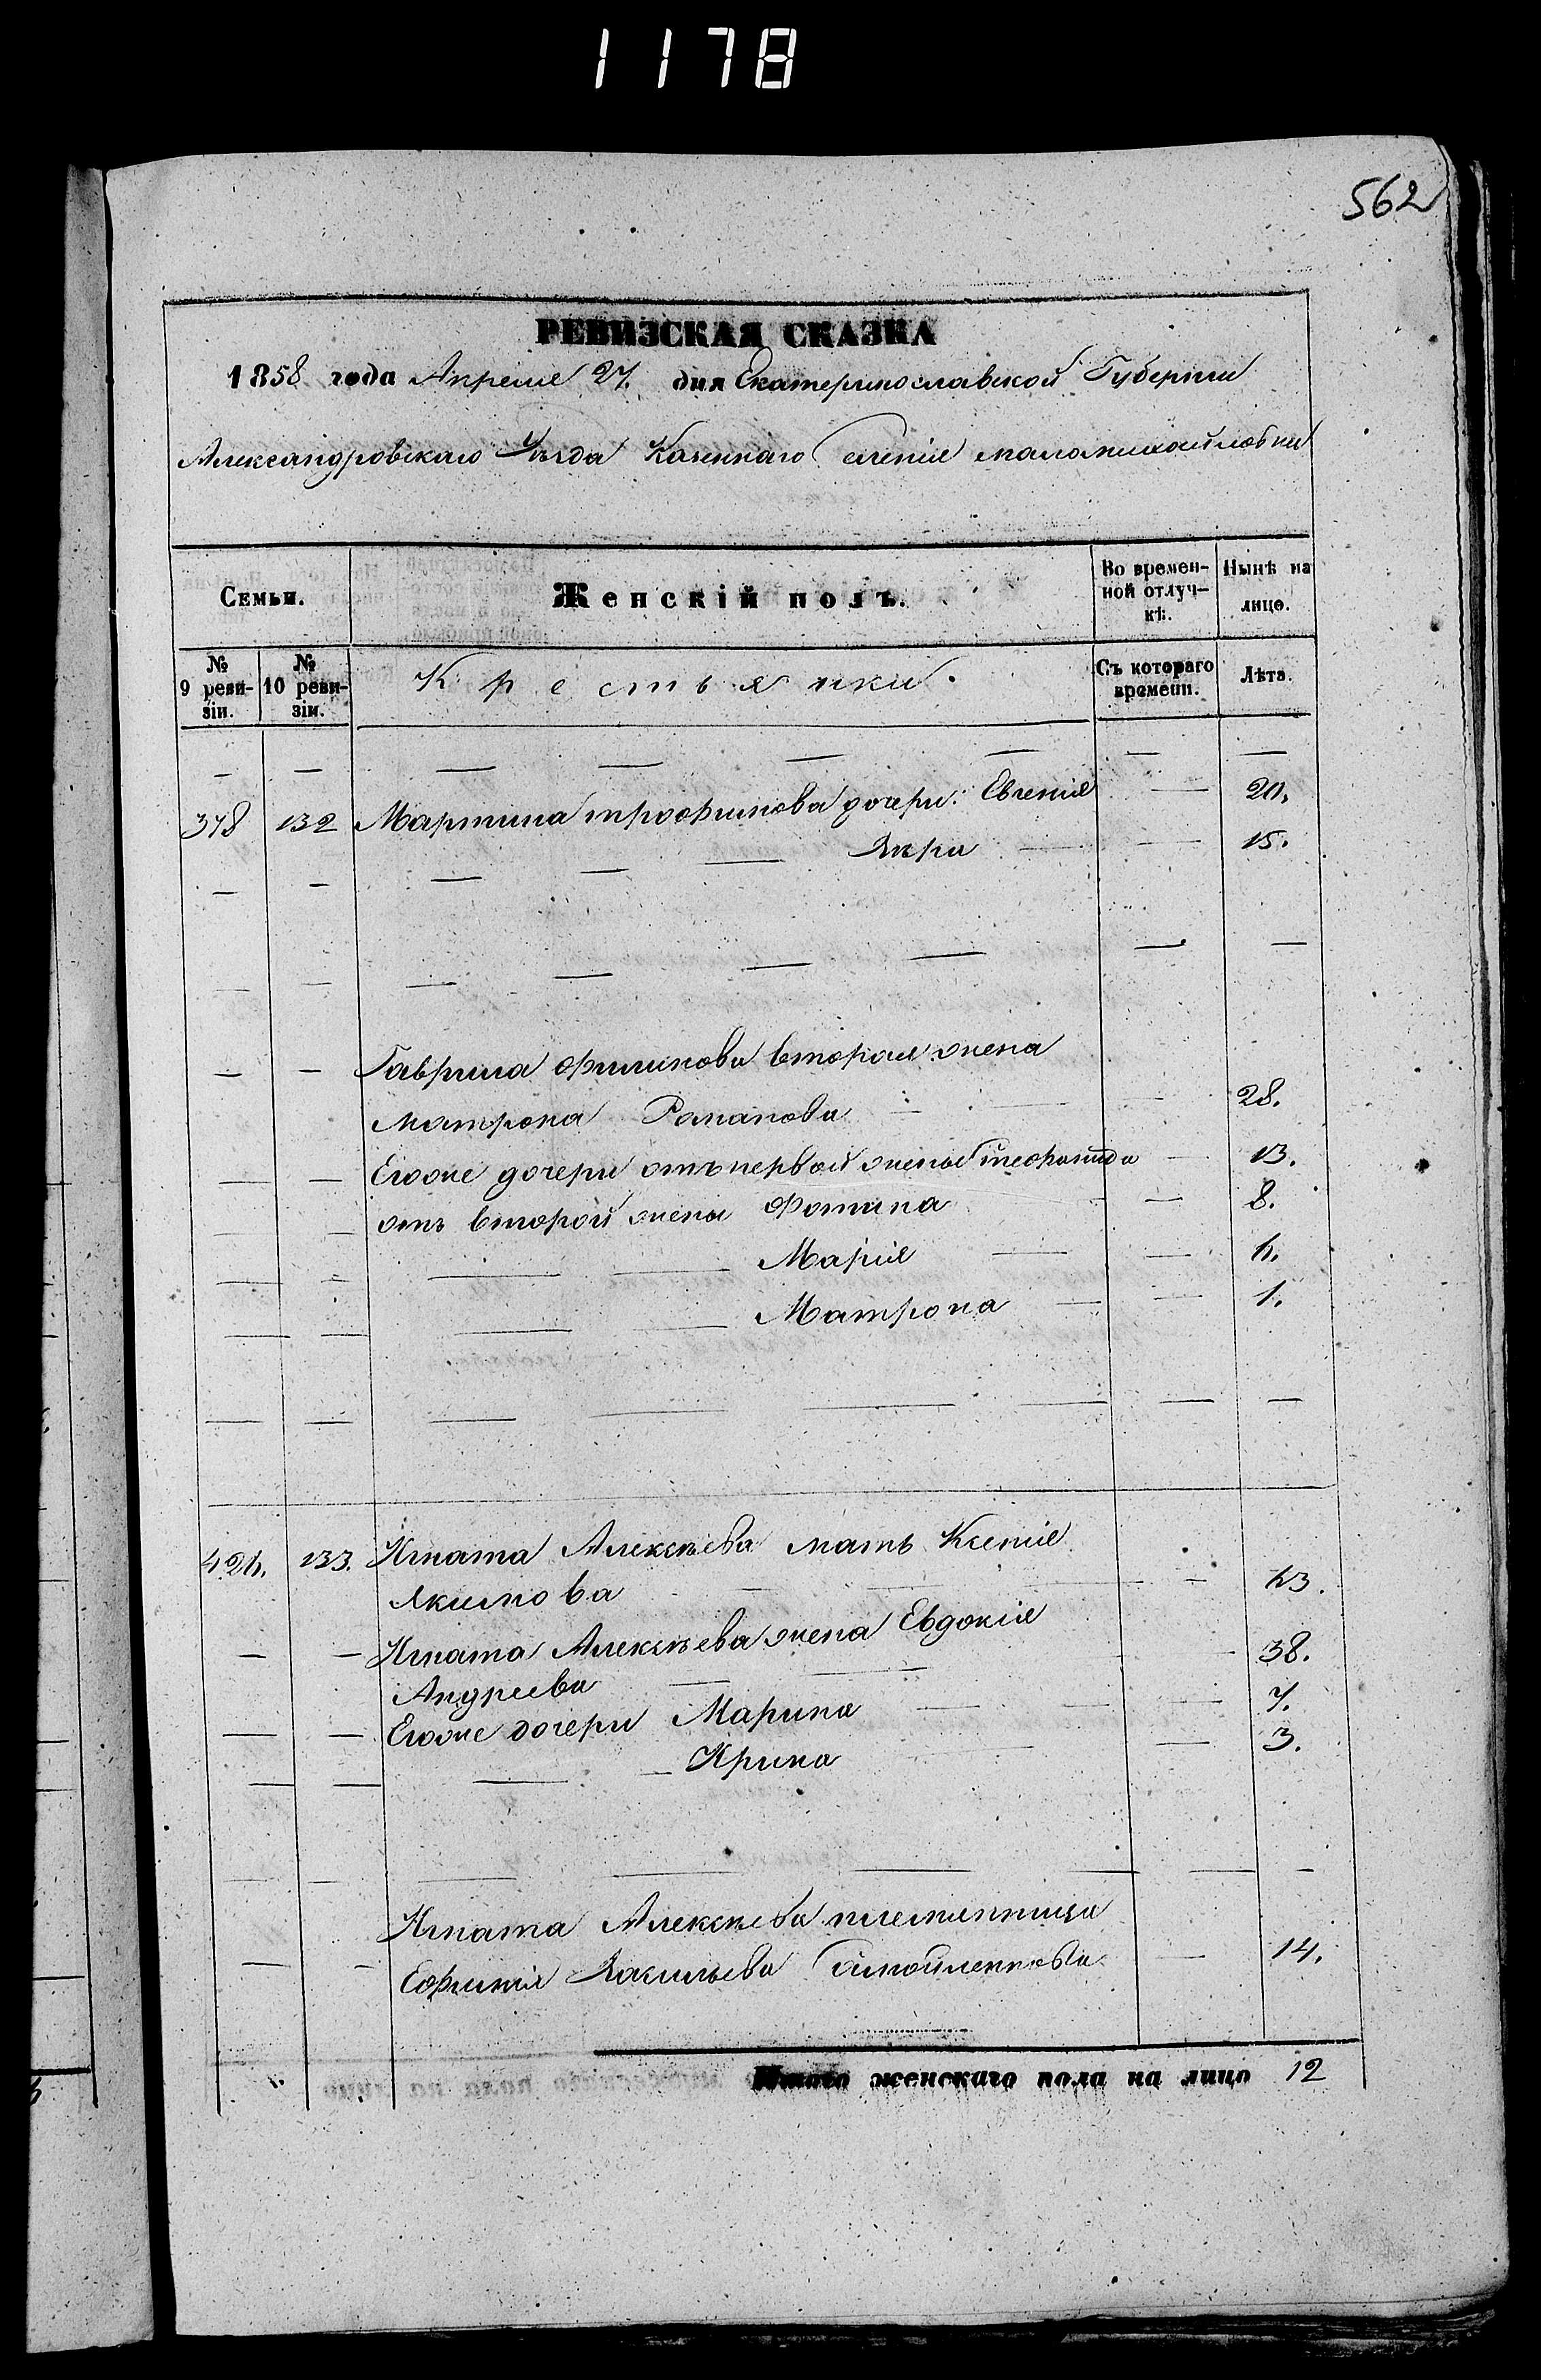 1178
562
РЕВИЗСКАЯ СКАЗКА
1858 года Апреля 27. дня Екатеринославской Губерніи
Александровскаго Уѣзда Казеннаго селенія маломихайловки
Семьи. Женскій полъ. Во времен-ной отлуч-кѣ. Нынѣ на лицо.
№ 9 реви-зіи. № 10 реви-зіи. Крестьянки. Съ котораго времени. Лѣта.
— — — — — — — —
378 132 Мартина трофимова дочери: Евгенія — 20.
— — — — — Явра — — 15.
— — — — — — — —
— — Гаврила Филипова вторая жена
Матрона Романова — — — 28.
— — Егоже дочери отъ первой жены теофанида — 13.
— — отъ второй жены Фотина — 8.
— — — — Марія — — 4.
— — — — Матрона — — 1.
— — — — — — — —
424. 133. Игната Алексѣева мать Ксенія
Якимова — — — — 43.
— — Игната Алексѣева жена Евдокія
Андреева — — — 38.
— — Егоже дочери Марина — — — 7.
— — — — Ирина — — 3.
— — — — — — — —
Игната Алексѣева племянница
— — Ефимія Васильева Самойленкова — 14.
Итого женскаго пола на лицо 12